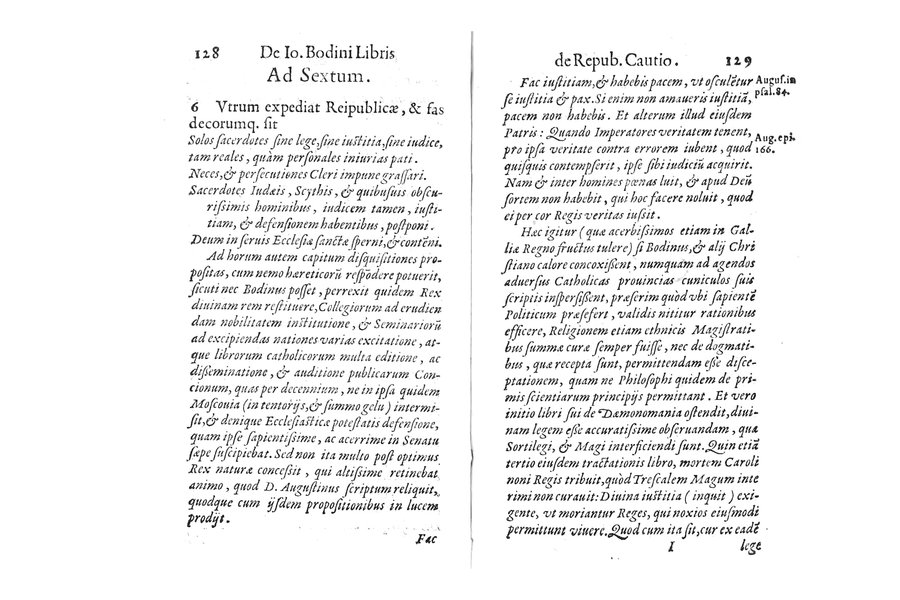 128 De Io. Bodini Libris
Ad Sextum.
6 Vtrum expediat Reipublicæ, & fas
decorumq. sit
Solos sacerdotes sine lege, sine iustitia, sine iudice,
tam reales, quàm personales iniurias pati.
Neces, & persecutiones Cleri impune grassari.
Sacerdotes Iudæis, Scythis, & quibusuis obscu-
rissimis hominibus, iudicem tamen, iusti-
tiam, & defensionem habentibus, postponi.
Deum in seruis Ecclesiæ sanctæ sperni, & contẽni.
Ad horum autem capitum disquisitiones pro-
positas, cum nemo hæreticorũ respõdere potuerit,
sicuti nec Bodinus posset, perrexit quidem Rex
diuinam rem restituere, Collegiorum ad erudien
dam nobilitatem institutione, & Seminariorũ
ad excipiendas nationes varias excitatione, at-
que librorum catholicorum multa editione, ac
disseminatione, & auditione publicarum Con-
cionum, quas per decennium, ne in ipsa quidem
Moscouia (in tentorijs, & summo gelu) intermi-
sit, & denique Ecclesiasticæ potestatis defensione,
quam ipse sapientissime, ac acerrime in Senatu
sæpe suscipiebat. Sed non ita multo post optimus
Rex naturæ concessit, qui altissime retinebat
animo, quod D. Augustinus scriptum reliquit,
quodque cum ijsdem propositionibus in lucem
prodijt.
Fac
de Repub. Cautio. 129
Fac iustitiam, & habebis pacem, vt osculẽtur
se iustitia & pax. Si enim non amaueris iustitiã,
pacem non habebis. Et alterum illud eiusdem
Patris: Quando Imperatores veritatem tenent,
pro ipsa veritate contra errorem iubent, quod
quisquis contempserit, ipse sibi iudiciũ acquirit.
Nam & inter homines pœnas luit, & apud Deũ
sortem non habebit, qui hoc facere noluit, quod
ei per cor Regis veritas iussit.
August. in
psal. 84.
Aug. epi.
166.
Hæc igitur (quæ acerbissimos etiam in Gal-
liæ Regno fructus tulere) si Bodinus, & alij Chri
stiano calore concoxissent, numquam ad agendos
aduersus Catholicas prouincias cuniculos suis
scriptis inspersissent, præserim quòd vbi sapientẽ
Politicum præsefert, validis nititur rationibus
efficere, Religionem etiam ethnicis Magistrati-
bus summæ curæ semper fuisse, nec de dogmati-
bus, quæ recepta sunt, permittendam esse disce-
ptationem, quam ne Philosophi quidem de pri-
mis scientiarum principijs permittant. Et vero
initio libri sui de Dæmonomania ostendit, diui-
nam legem esse accuratissime obseruandam, qua
Sortilegi, & Magi interficiendi sunt. Quin etiã
tertio eiusdem tractationis libro, mortem Caroli
noni Regis tribuit, quòd Trescalem Magum inte
rimi non curauit: Diuina iustitia (inquit) exi-
gente, vt moriantur Reges, qui noxios eiusmodi
permittunt viuere. Quod cum ita sit, cur ex eadẽ
I lege